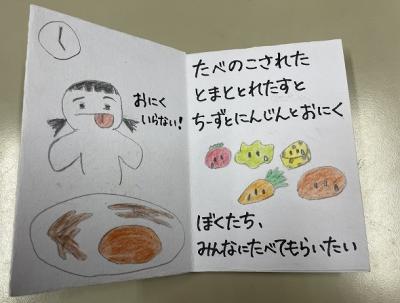 おにく
いらない!
たべのこされた
とまととれたすと
ちーずとにんじんとおにく
ぼくたち、
みんなにたべてもらいたい